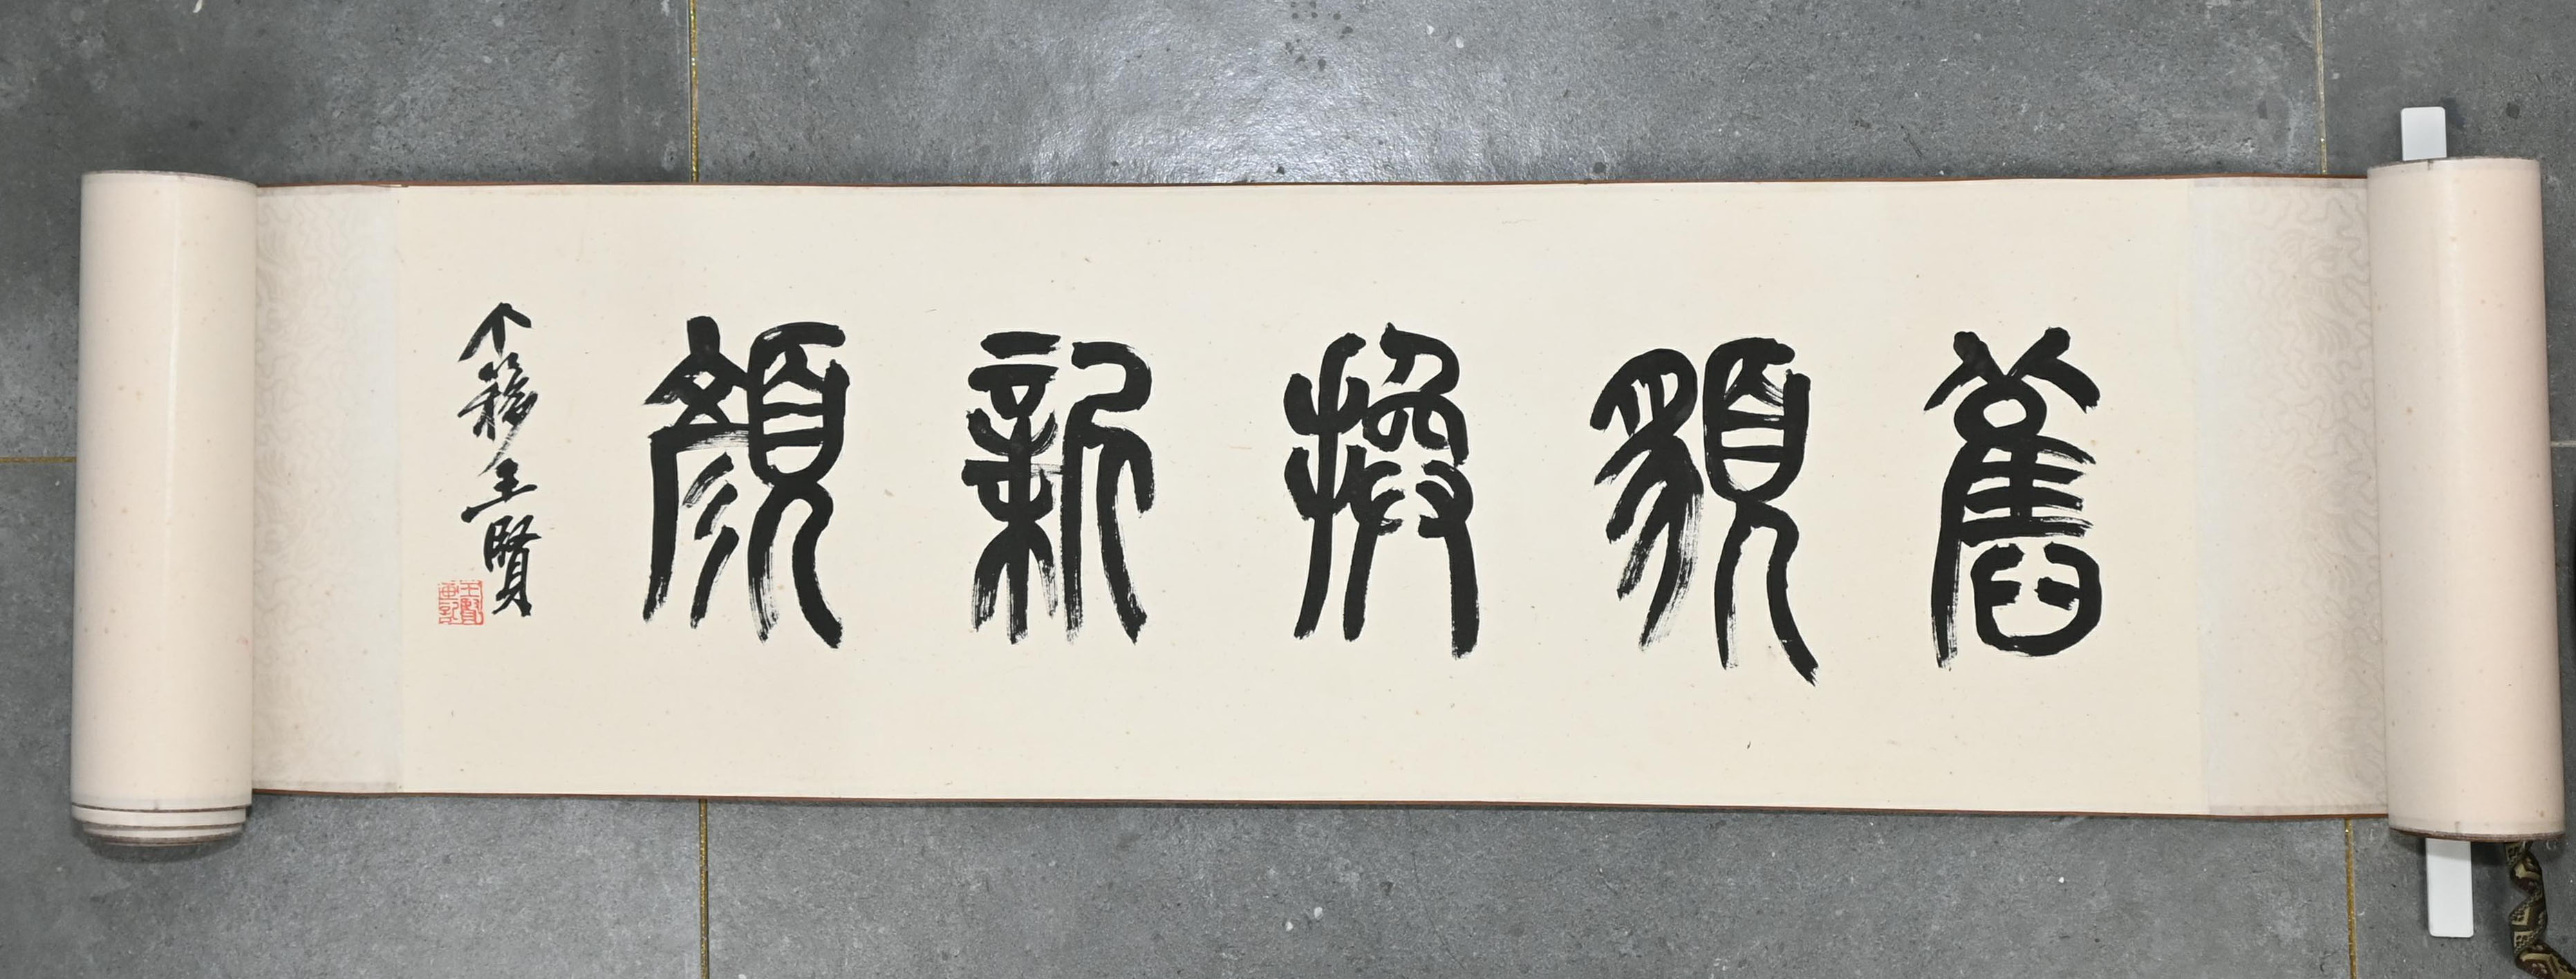 舊貌換新顏
个簃王賢
王賢